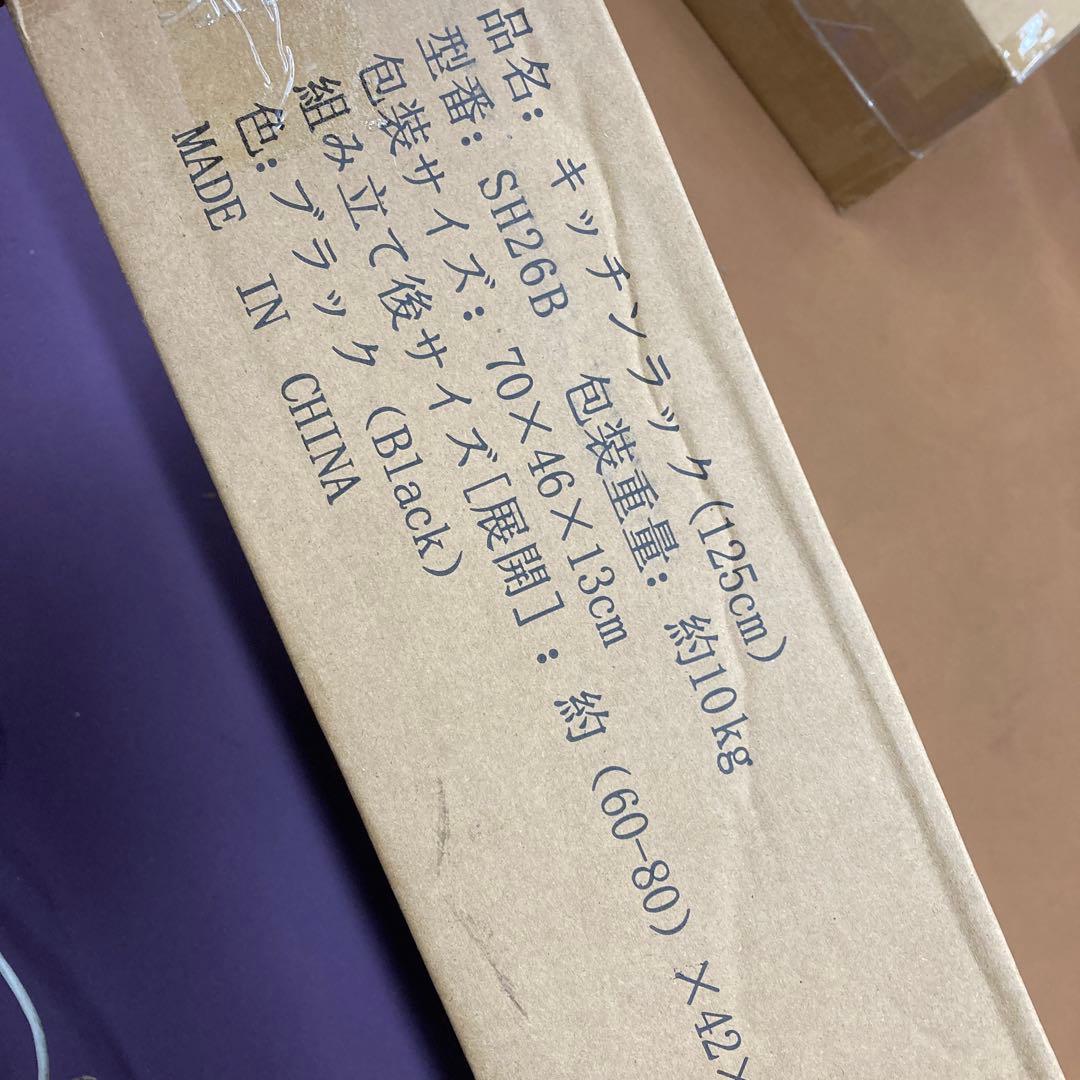 品名: キッチンラック(125cm)
型番: SH26B 包装重量: 約10kg
包装サイズ: 70×46×13cm
組み立て後サイズ[展開]: 約(60-80)×42×
色:ブラック (Black)
MADE IN CHINA